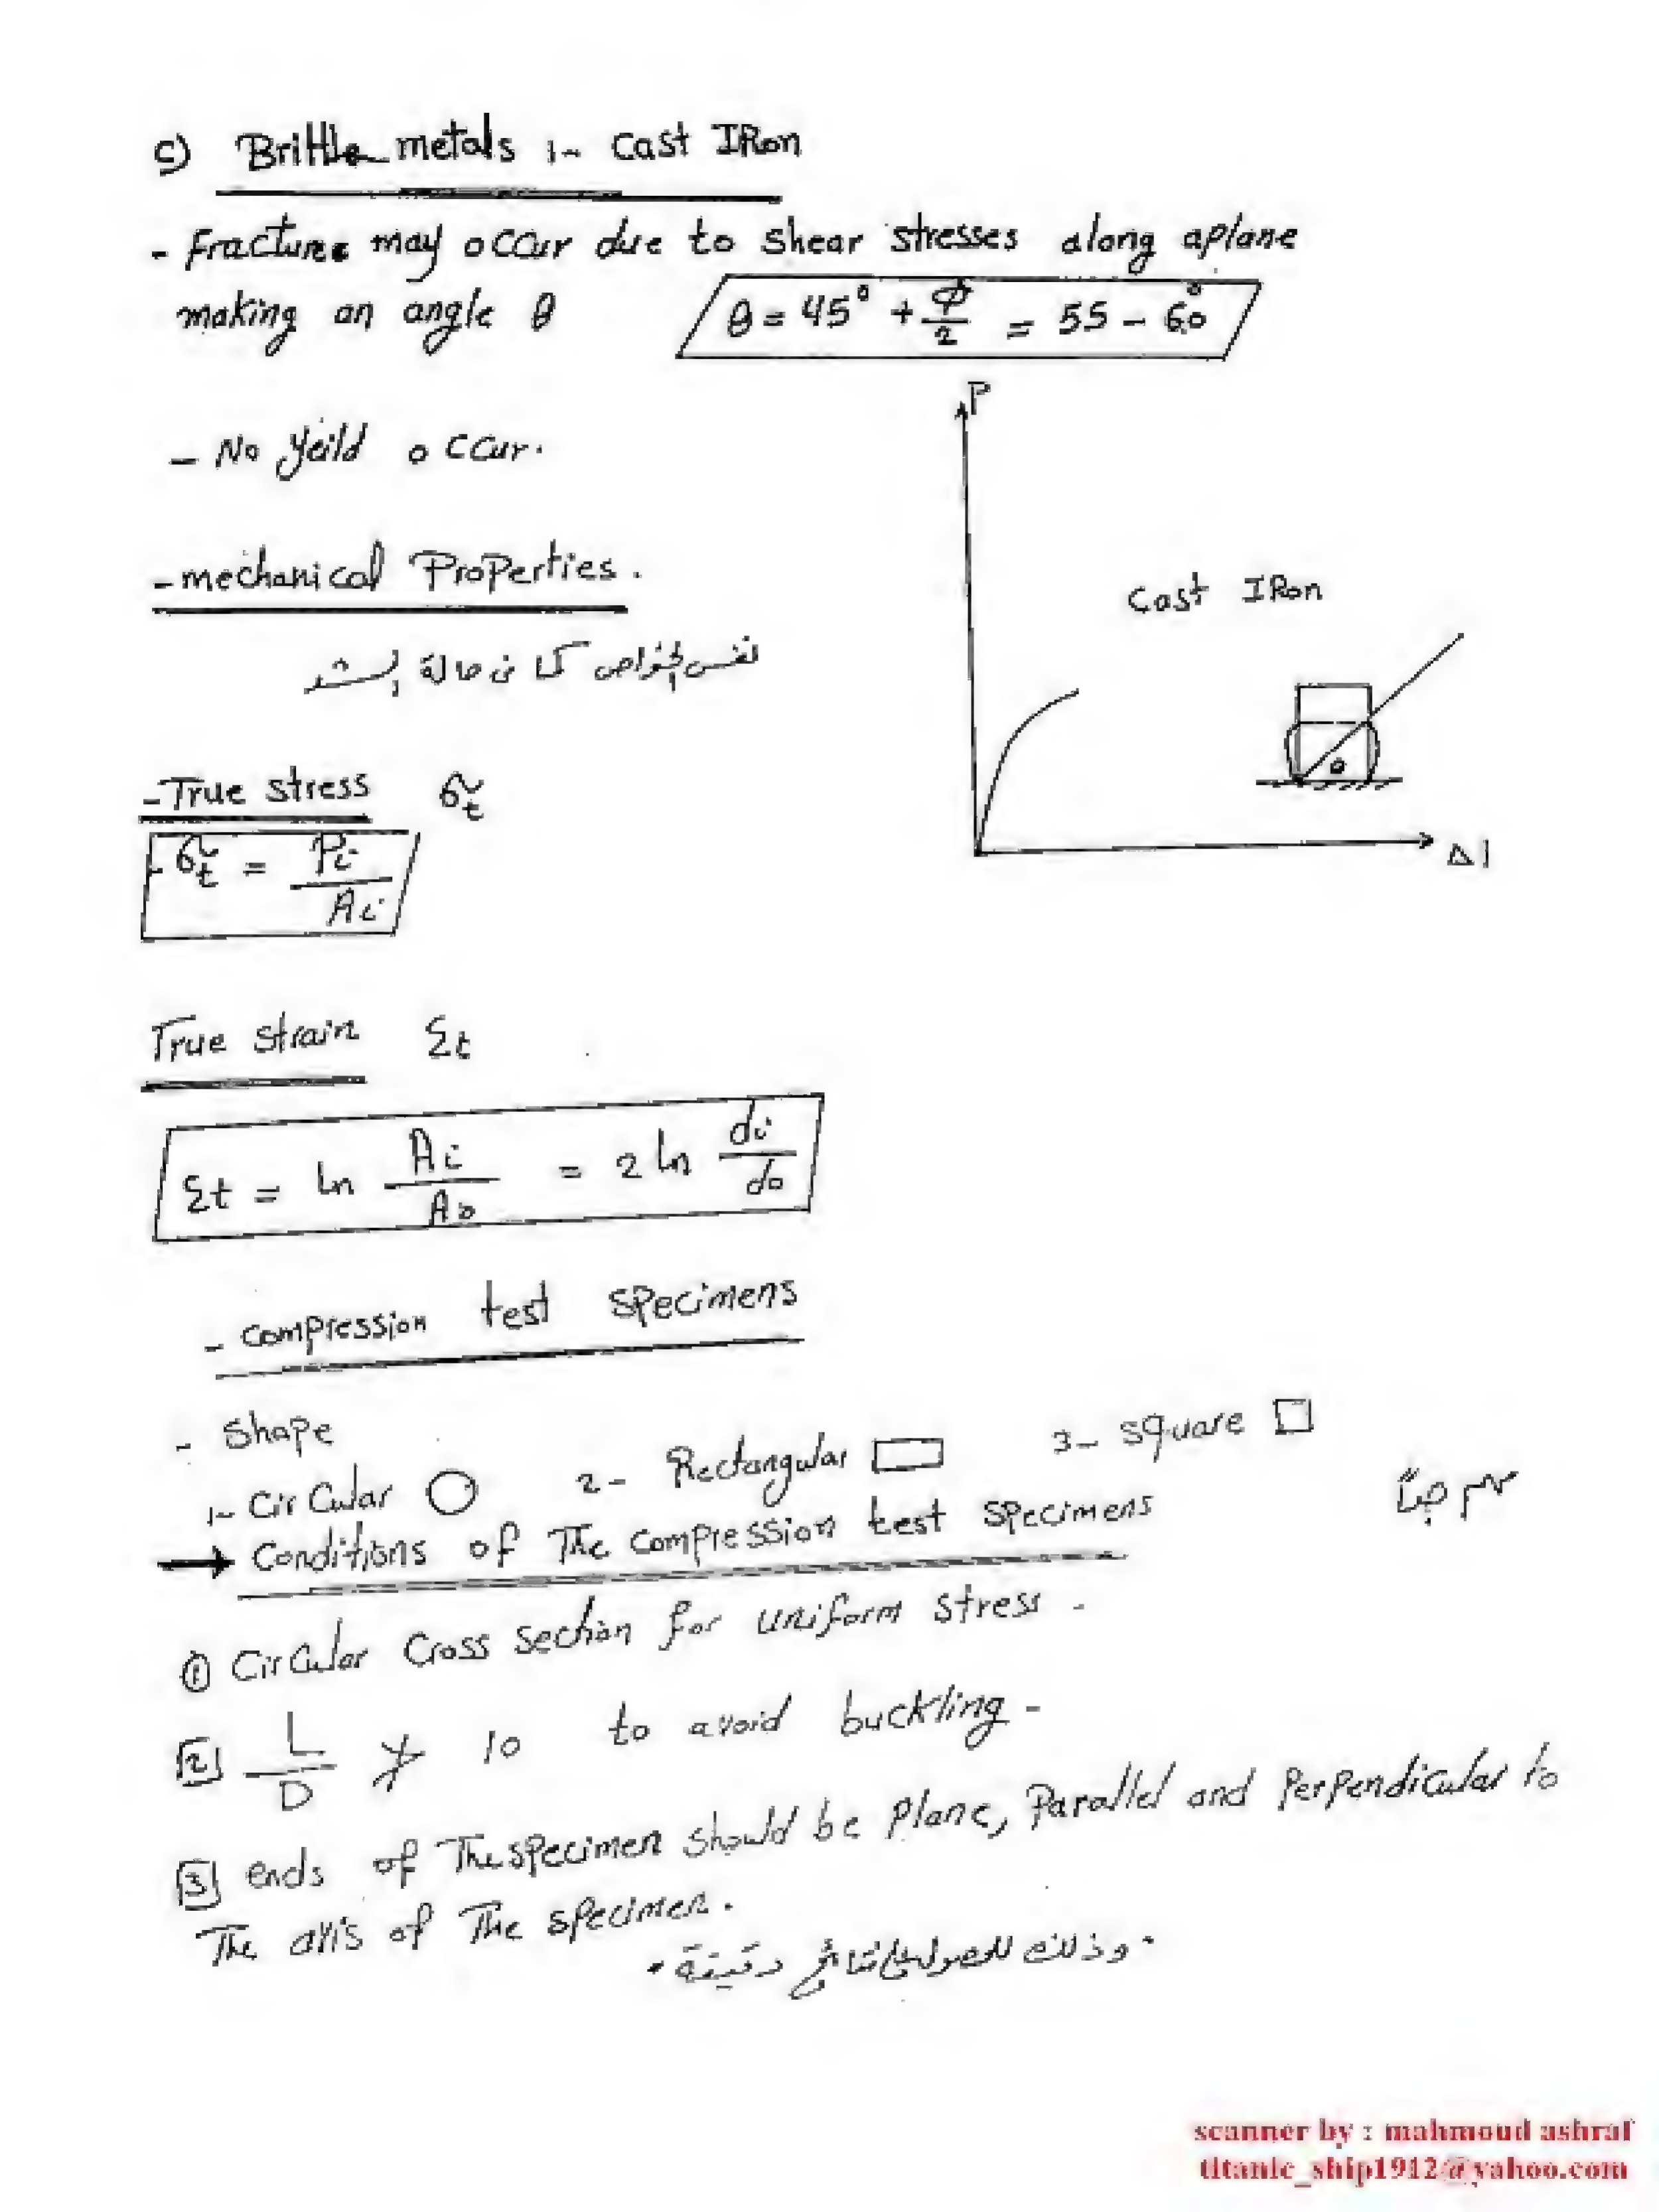 c) Brittle metals :- Cast IRon
- Fracture may occur due to shear stresses along aplane
making an angle θ
θ = 45° + Φ/2 = 55 - 60°
P
- No yeild occur.
- mechanical Properties.
Cast IRon
نفس الخواص كما فى حالة الشد
θ
- True stress σt
Δl
- σt = Pi / Ai
True strain εt
εt = ln Ai / Ao = 2 ln di / do
- compression test specimens
- shape
1- Circular 2- Rectangular 3- square
مهم جداً
→ Conditions of The compression test specimens
① Circular Cross section for uniform stress -
[2] L / D ≯ 10 to avoid buckling -
[3] ends of The specimen should be plane, Parallel and Perpendicular to
The axis of The specimen.
وذلك للحصول على نتائج دقيقة
scanner by : mahmoud ashraf
titanic_ship1912@yahoo.com